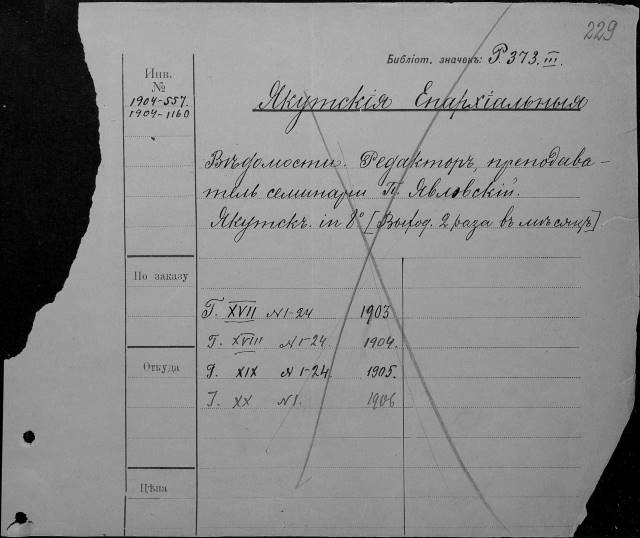 229
Библіот. значекъ: Р. 373. III.
Инв.
№
1904-557.
1904-1160
Якутскія Епархіальныя
Вѣдомости. Редакторъ, преподава-
тель семинаріи П. Явловскій.
Якутскъ. in 8° [Выход. 2 раза въ мѣсяцъ]
По заказу
Г. XVII N 1-24 1903
Г. XVIII N 1-24. 1904.
Откуда
Г. XIX N 1-24. 1905.
Г. XX N 1. 1906
Цѣна